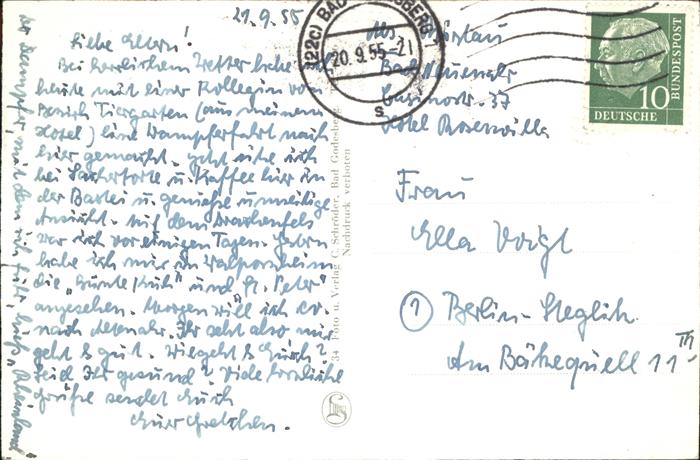 21.9.55
Liebe Eltern!
Bei herrlichem Wetter habe ich
heute mit einer Kollegin vom
Bezirk Tiergarten (aus meinem
Hotel) eine Dampferfahrt nach
hier gemacht. Jetzt sitze ich
bei Sachertorte u. Kaffee hier in
der Bastei u. genieße umseitige
Ansicht. Auf dem Drachenfels
war ich vor einigen Tagen. Gestern
habe ich mir in Walporzheim
die „Bunte Kuh" und St. Peter
angesehen. Morgen will ich ev.
nach Altenahr. Ihr seht also mir
geht's gut. Wie geht's Euch?
Seid Ihr gesund? Viele herzliche
Grüße sendet Euch
Euer Gretchen.
Der Dampfer, mit dem ich fuhr, hieß „Rheinland"
34 Foto u. Verlag C. Schröder, Bad Godesberg
Nachdruck verboten
(22c) BAD GODESBERG 1
20.9.55-21
s
Abs.
Bad Neuenahr
Casinostr. 37
Hotel Rosenvilla
10
DEUTSCHE
BUNDESPOST
Frau
Ella Voigt
(1) Berlin-Steglitz
Am Bäkequell 11 III